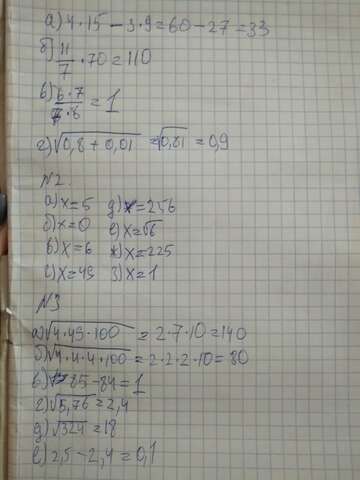 а) 4·15 − 3·9 = 60 − 27 = 33
б) 11/7 · 70 = 110
в) 6·7/7·8 = 1
г) √0,8 + 0,01 = √0,81 = 0,9
№2.
а) x = 5 д) x = 256
б) x = 0 е) x = √6
в) x = 6 ж) x = 225
г) x = 49 з) x = 1
№3
а) √4·49·100 = 2·7·10 = 140
б) √4·4·4·100 = 2·2·2·10 = 80
в) 85 − 84 = 1
г) √5,76 = 2,4
д) √324 = 18
е) 2,5 − 2,4 = 0,1